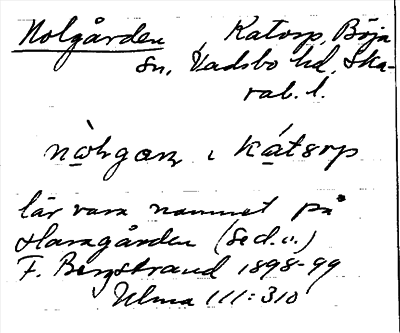 Nolgården Katorp, Böja
sn, Vadsbo hd, Ska-
rab. l.
nòlgaɳ i kátorp
lär vara namnet på
Haragården (se d. o.)
F. Bergstrand 1898-99
Ulma 111:310